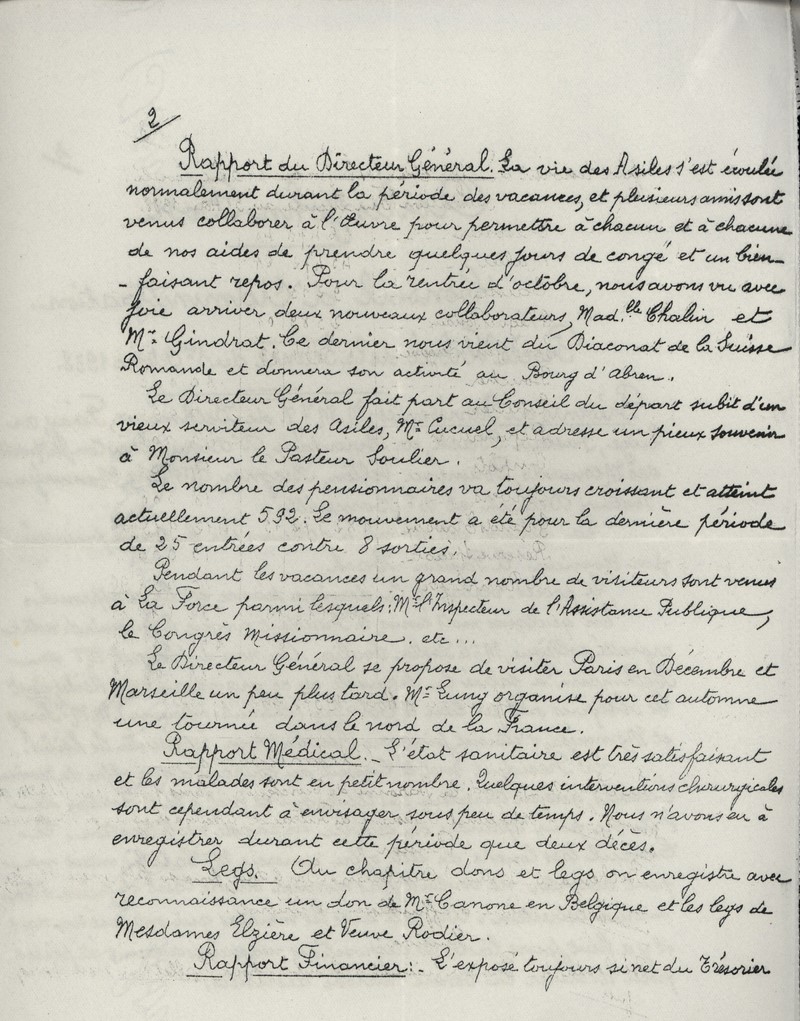 2
Rapport du Directeur Général. La vie des Asiles s'est écoulée
normalement durant la période des vacances, et plusieurs amis sont
venus collaborer à l'Œuvre pour permettre à chacun et à chacune
de nos aides de prendre quelques jours de congé et un bien-
- faisant repos. Pour la rentrée d'octobre, nous avons vu avec
joie arriver deux nouveaux collaborateurs, Mad.lle Chalin et
Mr. Gindrat. Ce dernier nous vient du Diaconat de la Suisse
Romande et donnera son activité au Bourg d'Abren.
Le Directeur Général fait part au Conseil du départ subit d'un
vieux serviteur des Asiles, Mr. Cucuel, et adresse un pieux souvenir
à Monsieur le Pasteur Soulier.
Le nombre des pensionnaires va toujours croissant et atteint
actuellement 592. Le mouvement a été pour la dernière période
de 25 entrées contre 8 sorties.
Pendant les vacances un grand nombre de visiteurs sont venus
à La Force parmi lesquels: Mr. l'Inspecteur de l'Assistance Publique,
le Congrès Missionnaire. etc...
Le Directeur Général se propose de visiter Paris en Décembre et
Marseille un peu plus tard. Mr. Luny organise pour cet automne
une tournée dans le nord de la France.
Rapport Médical. - L'état sanitaire est très satisfaisant
et les malades sont en petit nombre. Quelques interventions chirurgicales
sont cependant à envisager sous peu de temps. Nous n'avons eu à
enregistrer durant cette période que deux décès.
Legs. Au chapitre dons et legs on enregistre avec
reconnaissance un don de Mr. Canone en Belgique et les legs de
Mesdames Elzière et Veuve Rodier.
Rapport Financier: - L'exposé toujours si net du Trésorier